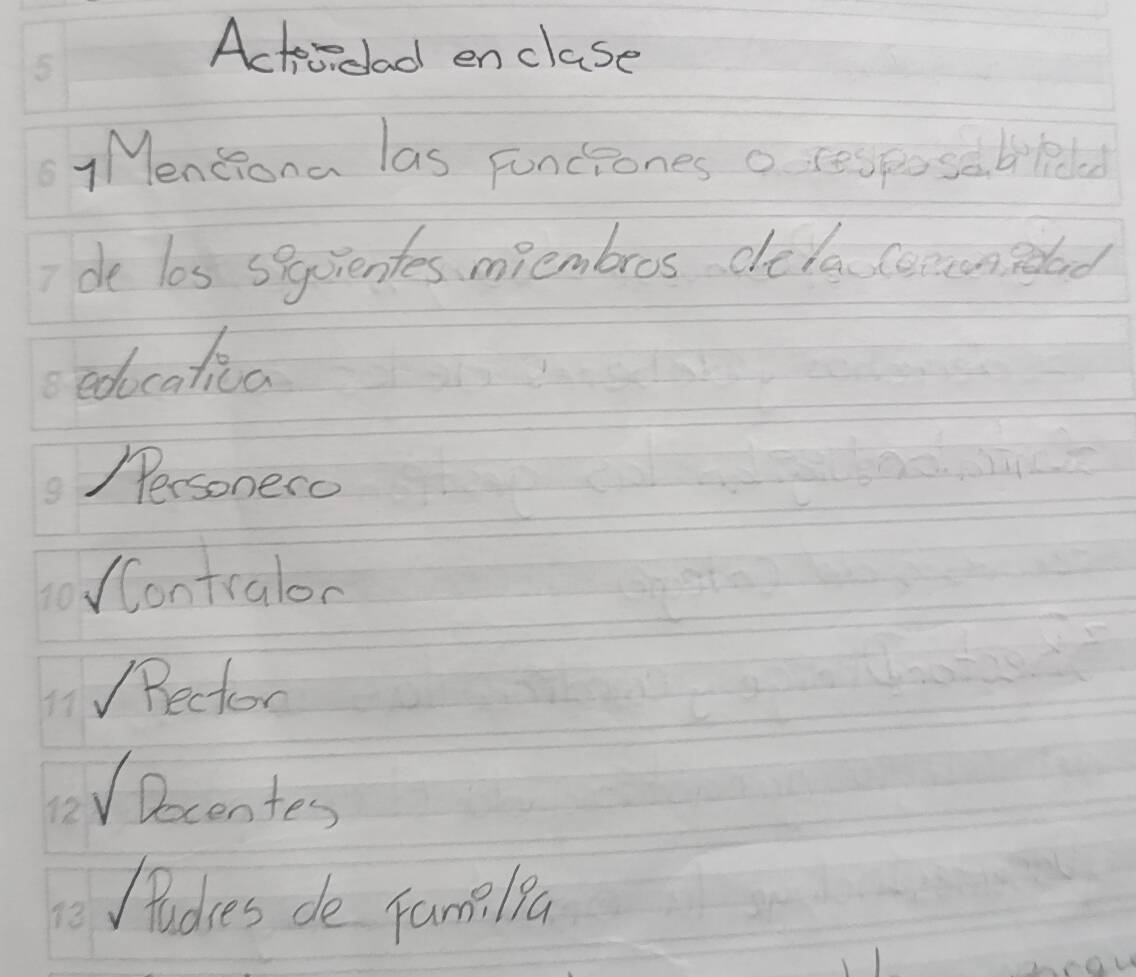 5 Actividad en clase
6 1 Menciona las funciones o resposabilidad
7 de los siguientes miembros de la comunidad
8 educativa
9 ✓ Personero
10 ✓ Contralor
11 ✓ Rector
12 ✓ Docentes
13 ✓ Padres de familia